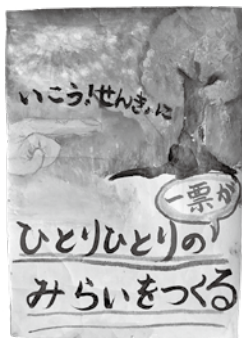 いこう！せんきょに
一票が
ひとりひとりの
みらいをつくる